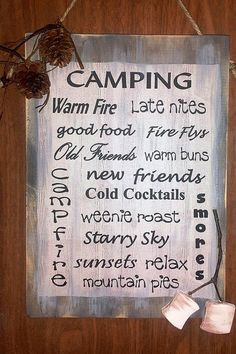 CAMPING
Warm Fire Late nites
good food Fire Flys
Old Friends warm buns
new friends
Cold Cocktails
weenie roast
Starry Sky
sunsets relax
mountain pies
Campfire
smores